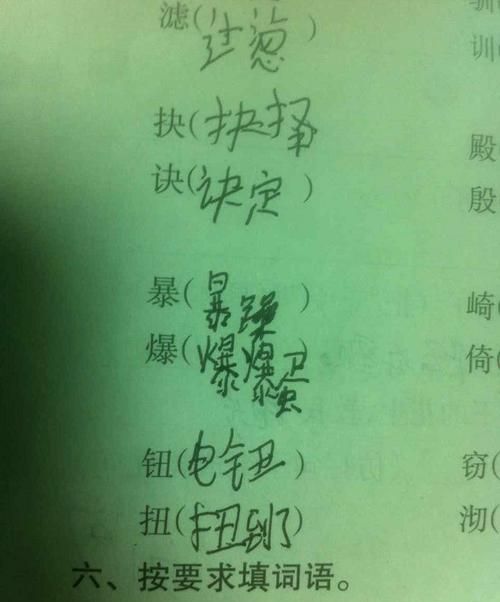 滤(过滤)
训
抉(抉择)
殿
诀(诀定)
殷
暴(暴躁)
崎(
爆(爆爆蛋)
倚(
钮(电钮)
窃(
扭(扭到了)
沏(
六、按要求填词语。